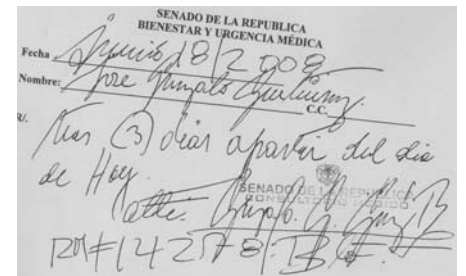 SENADO DE LA REPUBLICA
BIENESTAR Y URGENCIA MÉDICA
Fecha Junio 18/2008
Nombre: Jose Gonzalo Gutiérrez
C.C.
R/.
tres (3) dias apartir del dia
de Hoy.
SENADO DE LA REPUBLICA
CONSULTORIO MEDICO
Atte.
RM#14278